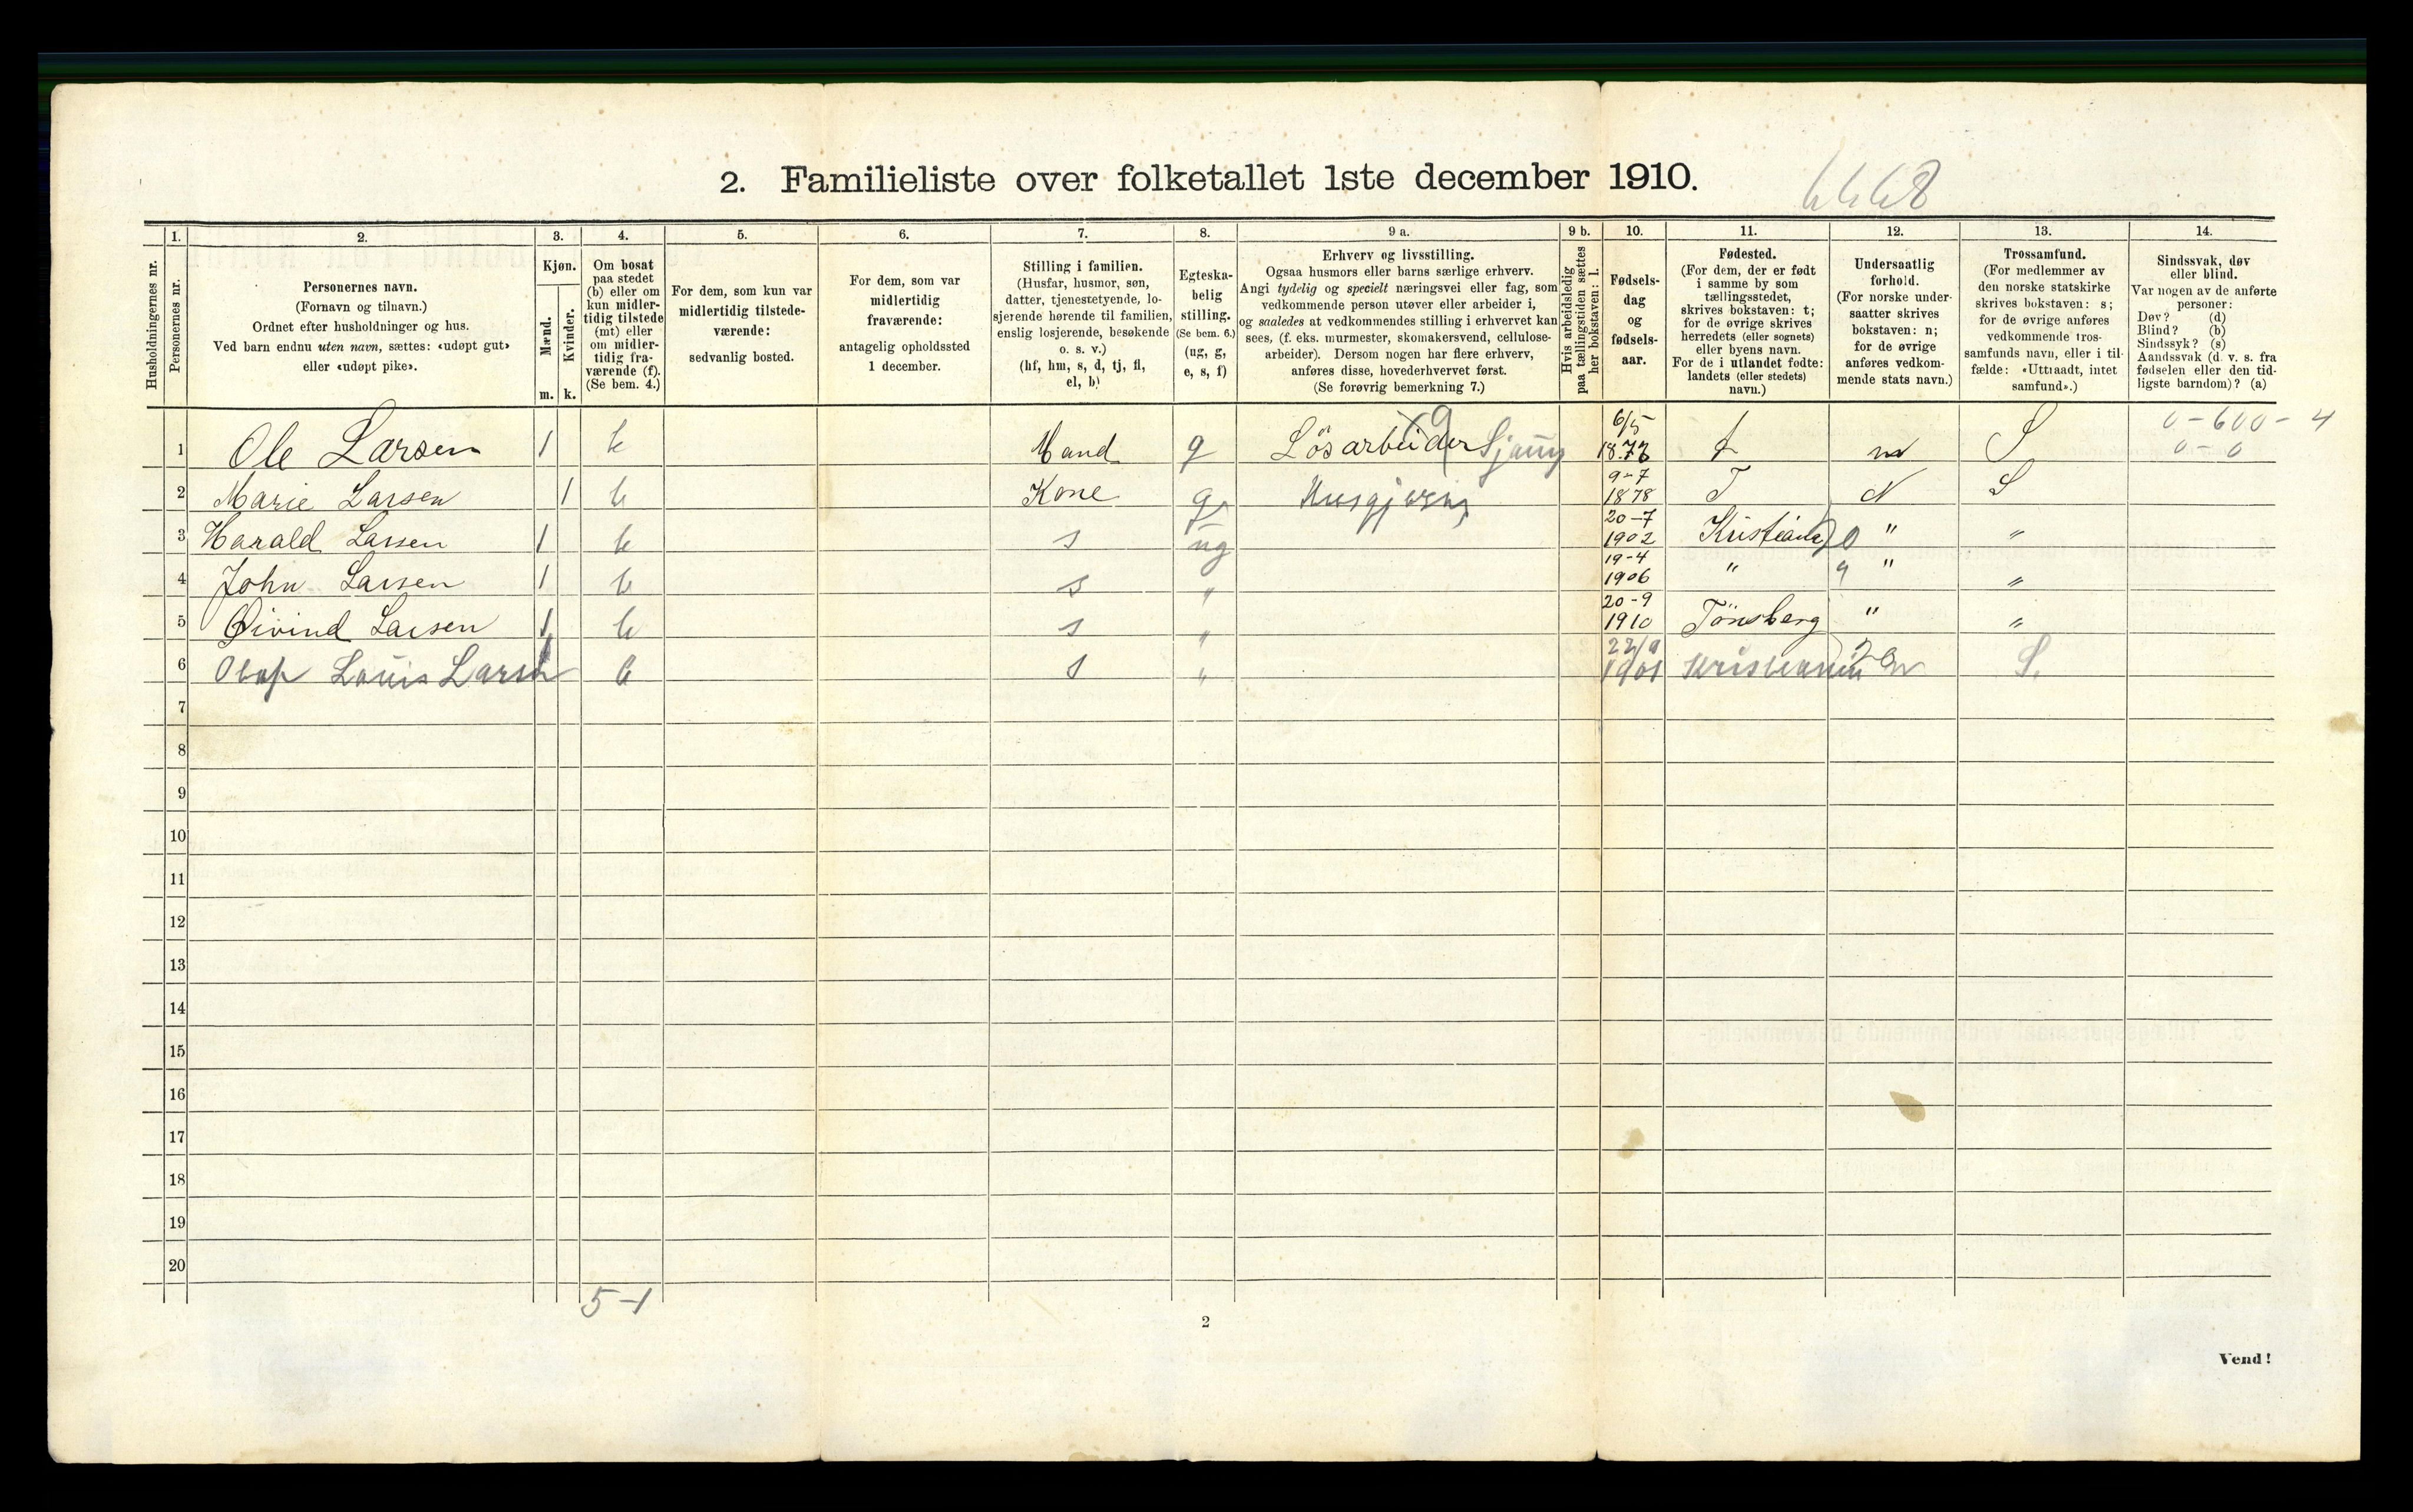 2. Familieliste over folketallet 1ste december 1910.
6668
Husholdningernes nr.
1. Personernes nr.
2. Personernes navn.
(Fornavn og tilnavn.)
Ordnet efter husholdninger og hus.
Ved barn endnu uten navn, sættes: «udøpt gut»
eller «udøpt pike».
3. Kjøn.
Mænd. m.
Kvinder. k.
4. Om bosat
paa stedet
(b) eller om
kun midler-
tidig tilstede
(mt) eller
om midler-
tidig fra-
værende (f).
(Se bem. 4.)
5. For dem, som kun var
midlertidig tilstede-
værende:
sedvanlig bosted.
6. For dem, som var
midlertidig
fraværende:
antagelig opholdssted
1 december.
7. Stilling i familien.
(Husfar, husmor, søn,
datter, tjenestetyende, lo-
sjerende hørende til familien,
enslig losjerende, besøkende
o. s. v.)
(hf, hm, s, d, tj, fl,
el, b)
8. Egteska-
belig
stilling.
(Se bem. 6.)
(ug, g,
e, s, f)
9 a. Erhverv og livsstilling.
Ogsaa husmors eller barns særlige erhverv.
Angi tydelig og specielt næringsvei eller fag, som
vedkommende person utøver eller arbeider i,
og saaledes at vedkommendes stilling i erhvervet kan
sees, (f. eks. murmester, skomakersvend, cellulose-
arbeider). Dersom nogen har flere erhverv,
anføres disse, hovederhvervet først.
(Se forøvrig bemerkning 7.)
9 b. Hvis arbeidsledig
paa tællingstiden sættes
her bokstaven: l.
10. Fødsels-
dag
og
fødsels-
aar.
11. Fødested.
(For dem, der er født
i samme by som
tællingsstedet,
skrives bokstaven: t;
for de øvrige skrives
herredets (eller sognets)
eller byens navn.
For de i utlandet fødte:
landets (eller stedets)
navn.)
12. Undersaatlig
forhold.
(For norske under-
saatter skrives
bokstaven: n;
for de øvrige
anføres vedkom-
mende stats navn.)
13. Trossamfund.
(For medlemmer av
den norske statskirke
skrives bokstaven: s;
for de øvrige anføres
vedkommende tros-
samfunds navn, eller i til-
fælde: «Uttraadt, intet
samfund».)
14. Sindssvak, døv
eller blind.
Var nogen av de anførte
personer:
Døv? (d)
Blind? (b)
Sindssyk? (s)
Aandssvak (d. v. s. fra
fødselen eller den tid-
ligste barndom)? (a)
1 Ole Larsen 1 b Mand g Lösarbeider 6/5 t n S 0-600-4
0-0
2 Marie Larsen 1 b Kone g 9-7 1878 T N S
3 Harald Larsen 1 b s ug 20-7 1902 Kristiania " "
4 John Larsen 1 b s " 19-4 1906 " " "
5 Øivind Larsen 1 b s " 20-9 1910 Tönsberg " "
6 Olaf Louis Larsen 1 b s " 1901 Kristiania n S.
7
8
9
10
11
12
13
14
15
16
17
18
19
20
5-1
2
Vend!